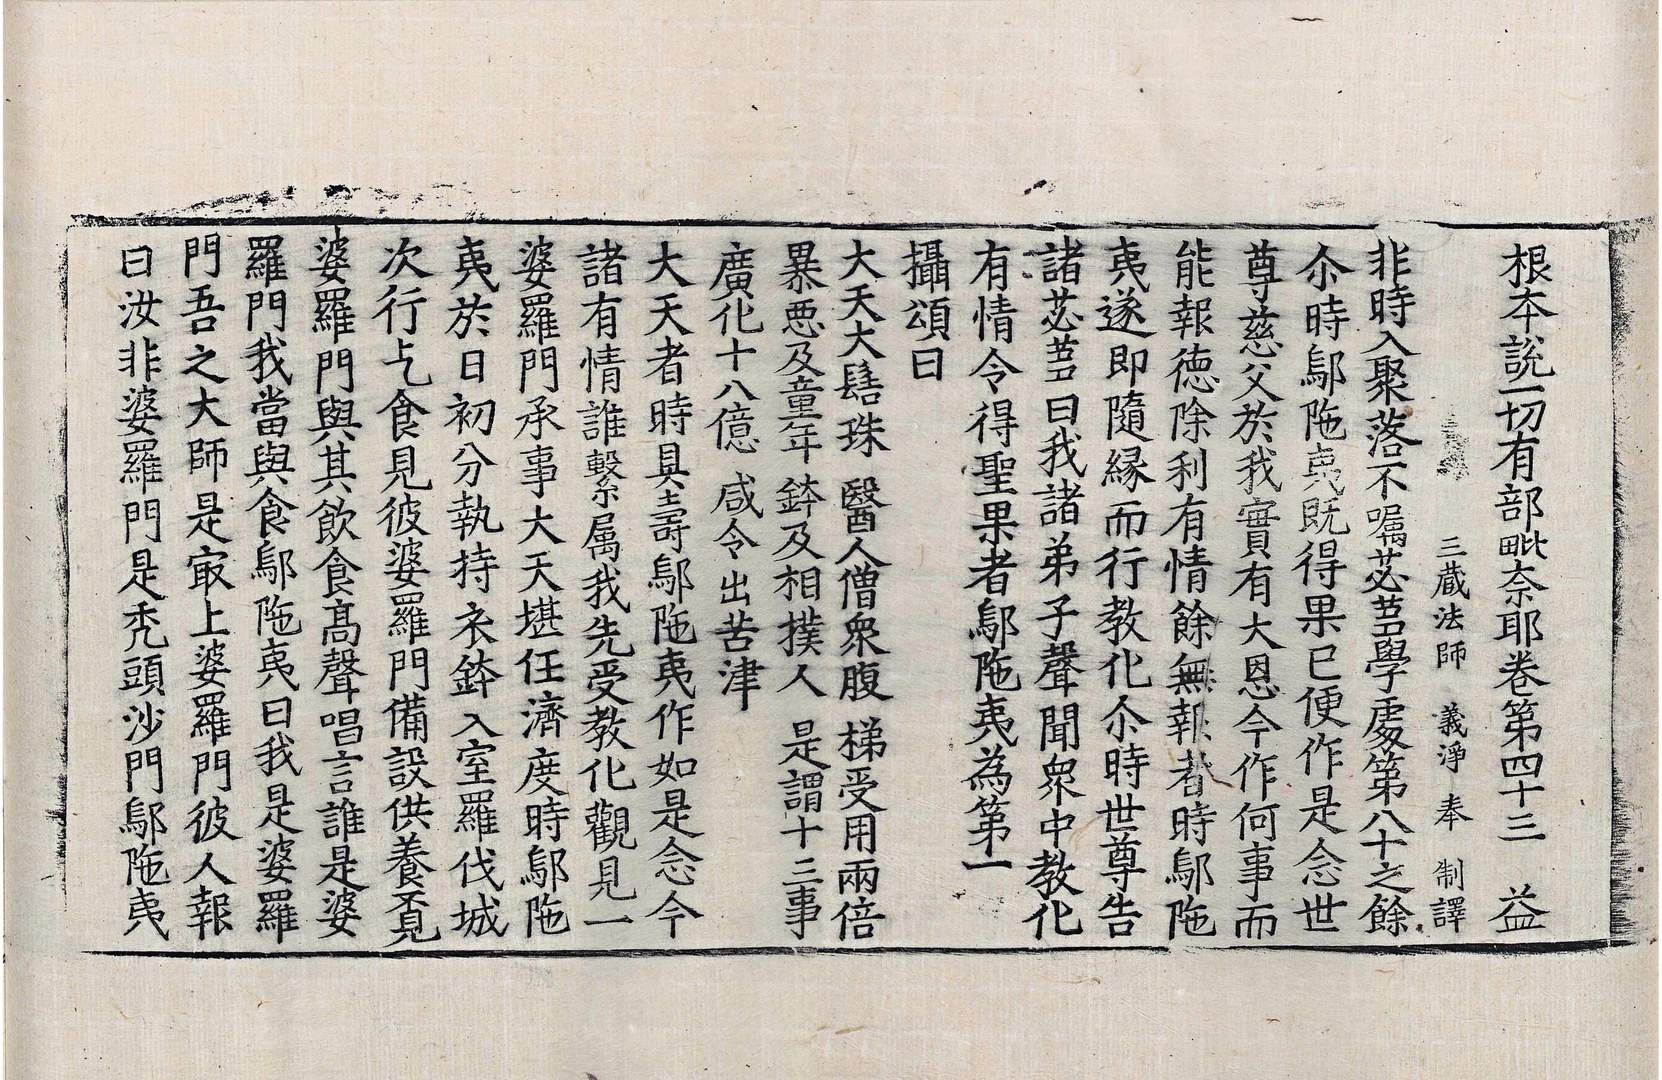 根本說一切有部毗奈耶卷第四十三　益
三蔵法師　義淨　奉　制譯
非時入聚落不囑苾芻學處第八十之餘
尒時鄔陁夷既得果已便作是念世
尊慈父於我實有大恩今作何事而
能報德除利有情餘無報者時鄔陁
夷遂即隨縁而行教化尒時世尊告
諸苾芻曰我諸弟子聲聞衆中教化
有情令得聖果者鄔陁夷為第一
攝頌曰
大天大髻珠　醫人僧衆腹　梯受用兩倍
暴惡及童年　鉢及相撲人　是謂十三事
廣化十八億　咸令出苦津
大天者時具壽鄔陁夷作如是念今
諸有情誰繫属我先受教化觀見一
婆羅門承事大天堪任濟度時鄔陁
夷於日初分執持衣鉢入室羅伐城
次行乞食見彼婆羅門備設供養覔
婆羅門與其飲食高聲唱言誰是婆
羅門我當與食鄔陁夷曰我是婆羅
門吾之大師是㝡上婆羅門彼人報
曰汝非婆羅門是禿頭沙門鄔陁夷